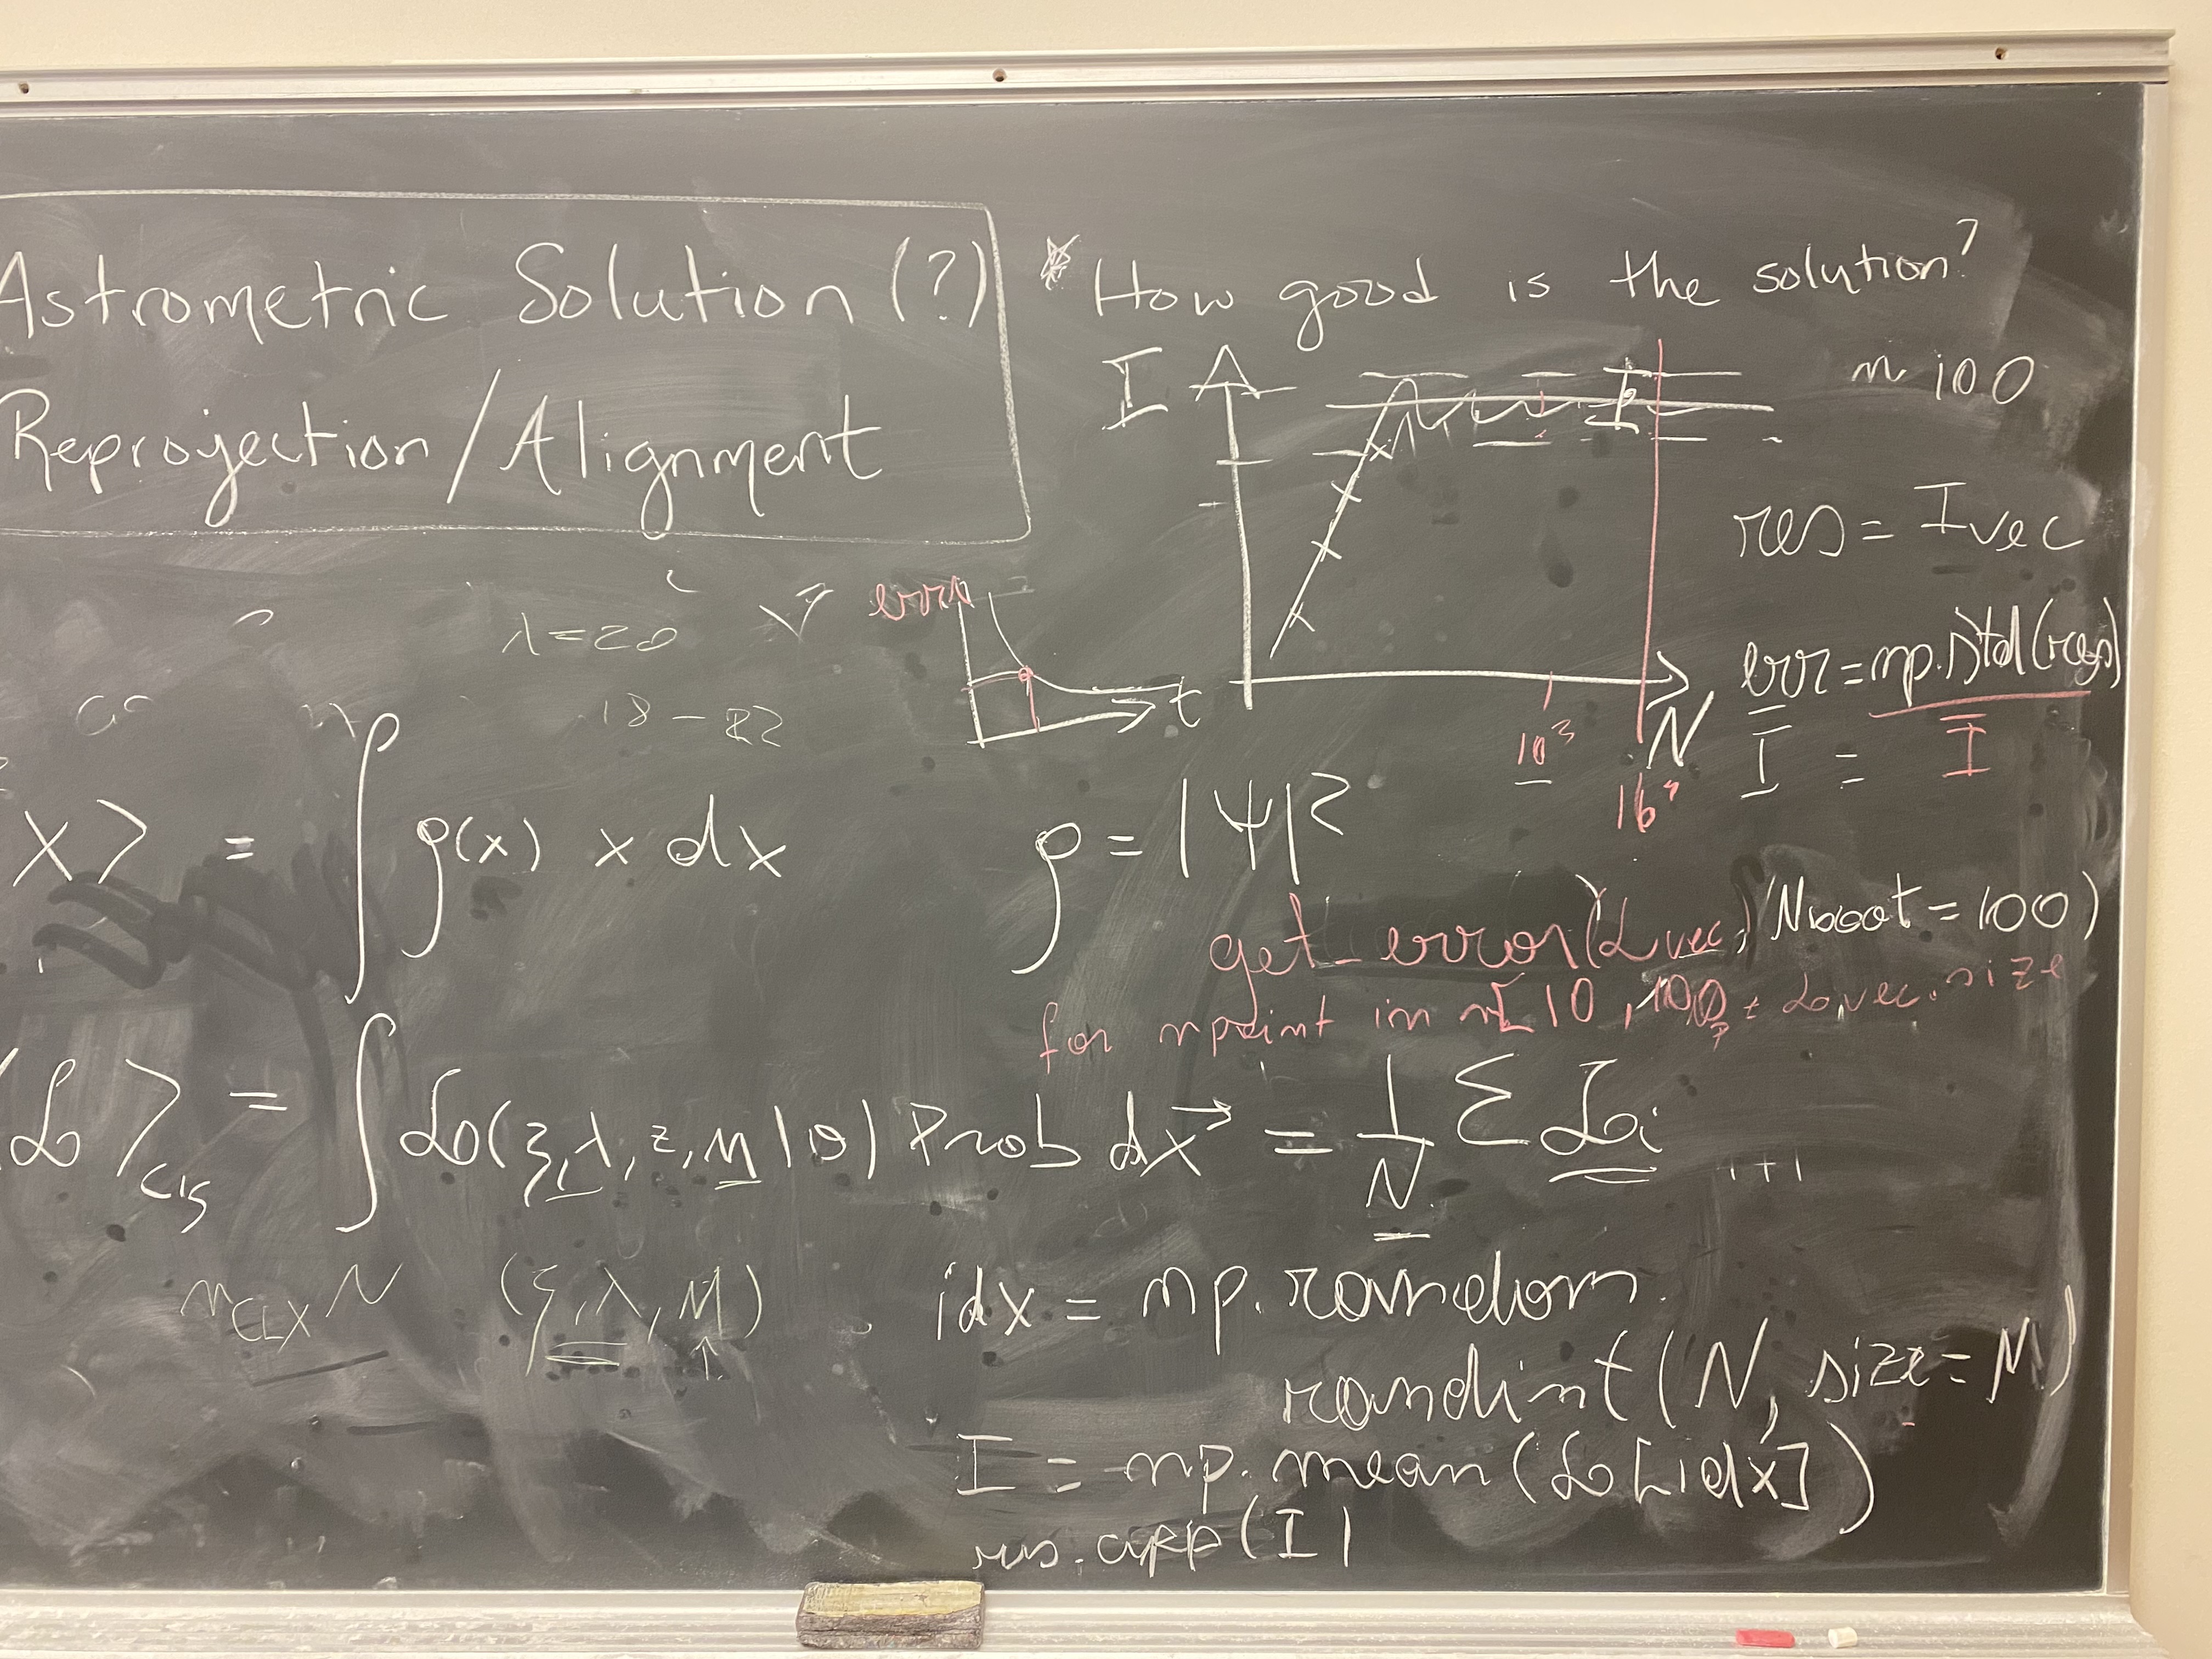 Astrometric Solution (?)
Reprojection/Alignment
* How good is the solution?
I
N
10³
~ 100
res = Ivec
err = np.std(res)
Ī = Ī
error
t
λ=20
18 - 22
x> = ∫ ρ(x) x dx
ρ = |Ψ|²
get_error(ℒvec, Nboot = 100)
for npoint in [10, 100, ℒvec.size
<ℒ> = ∫ ℒ(ξ, λ, z, M | θ) Prob dx⃗ = 1/N Σ ℒi
(ξ, λ, M)
idx = np.random.
randint(N, size=M)
I = np.mean(ℒ[idx])
res.app(I)